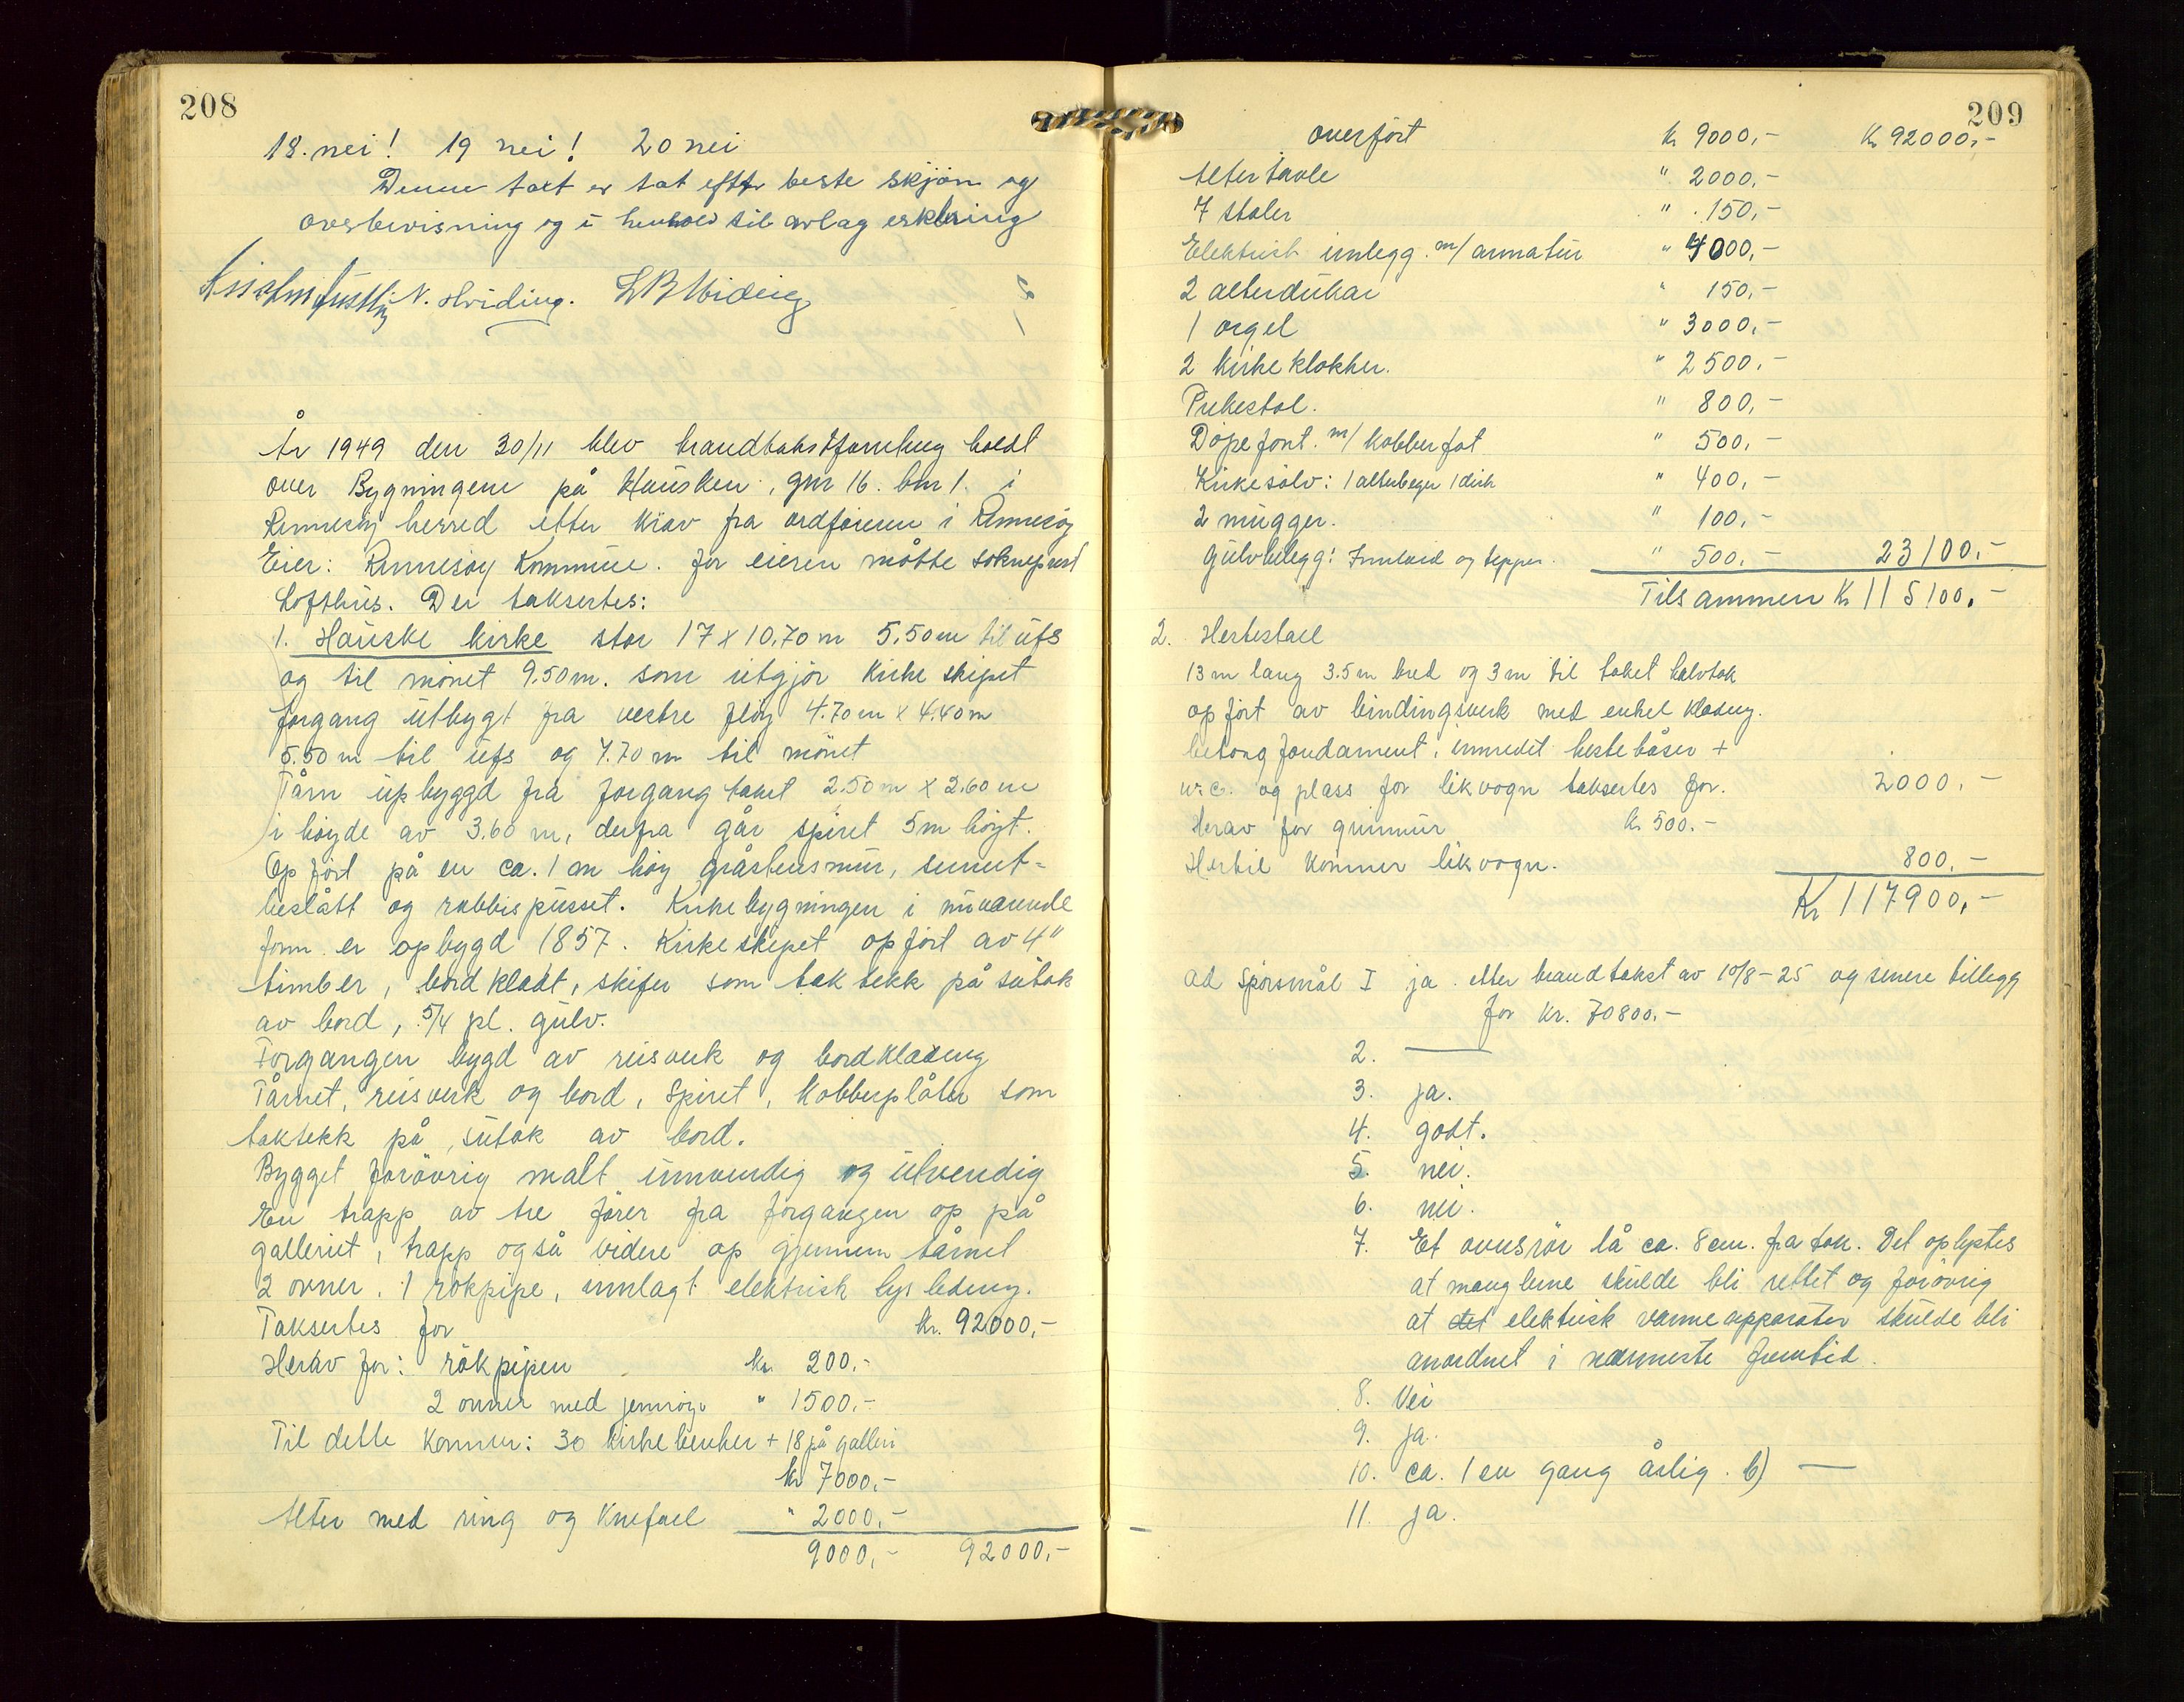 208
18. nei! 19 nei! 20 nei
Denne taxt er tat efter beste skjön og
overbevisning og i henhold til avlag erklæring
N. Hviding.
År 1949 den 30/11 blev brandtakstforretning holdt
over Bygningene på Hausken, gnr 16. bnr 1. i
Rennesøy herred etter krav fra ordføreren i Rennesøy
Eier: Rennesøy Kommune. for eieren møtte sokneprest
Lofthus. Der taksertes:
1. Hauske kirke stor 17 x 10.70 m 5.50 m til ufs
og til mønet 9.50 m. som utgjør kirke skipet
forgang utbygt fra vestre fløy 4.70 m x 4.40 m
5.50 m til ufs og 7.70 m til mønet
Tårn upbyggd fra forgang taket 2.50 m x 2.60 m
i høyde av 3.60 m, derfra går spiret 5m høyt.
Opført på en ca. 1 m høy gråstensmur, sement=
beslått og rabbispusset. Kirkebygningen i nuværende
form er opbygd 1857. Kirkeskipet opført av 4"
timber, bordkledt, skifer som taktekk på sutak
av bord, 5/4 pl. gulv.
Forgangen bygd av reisverk og bordkledning
Tårnet, reisverk og bord, Spiret, Kobberplåter som
taktekk på sutak av bord.
Bygget forøvrig malt innvendig og utvendig
En trapp av tre fører fra forgangen op på
galleriet, trapp også videre op gjennem tårnet
2 ovner. 1 rökpipe, innlagt elektrisk lys ledning.
Taksertes for kr. 92000,-
Herav for: rökpipen kr. 200.-
2 ovner med jernrør " 1500.-
Til dette kommer: 30 kirkebenker + 18 på galleri
kr 7000.-
Alter med ring og knefall " 2000.-
9000,- 92000.-
209
overført kr 9000,- kr 92000,-
Altertavle " 2000,-
7 stoler " 150,-
Elektrisk innlegg. m/ armatur " 4000,-
2 alterdukar " 150,-
1 orgel " 3000,-
2 kirkeklokker. " 2500.-
Prekestol. " 800,-
Döpefont. m/ kobberfat " 500,-
Kirkesølv: 1 alterbeger 1 disk " 400,-
2 mugger. " 100.-
Gulvbelegg: Innlaid og tepper. " 500.- 23100.-
Tilsammen Kr 115100.-
2. Hestestall
13 m lang 3.5 m bred og 3 m til taket halvtak
opført av bindingsverk med enkel kledning.
betong fondament, innredet hestebåser +
w.c. og plass for likvogn taksertes for. 2000.-
Herav for grunnmur kr 500.-
Hertil kommer likvogn. 800.-
Kr 117900,-
ad Spørsmål I ja. etter brandtakst av 10/8-25 og senere tillegg
for kr. 70800.-
2. ——
3. ja.
4. godt.
5. nei.
6. nei.
7. Et ovnsrør lå ca. 8 cm. fra tak. Det oplystes
at manglene skulde bli rettet og forøvrig
at det elektrisk varmeapparater skulde bli
anordnet i nærmeste fremtid.
8. Nei
9. ja.
10. ca. 1 en gang årlig. b) —
11. ja.